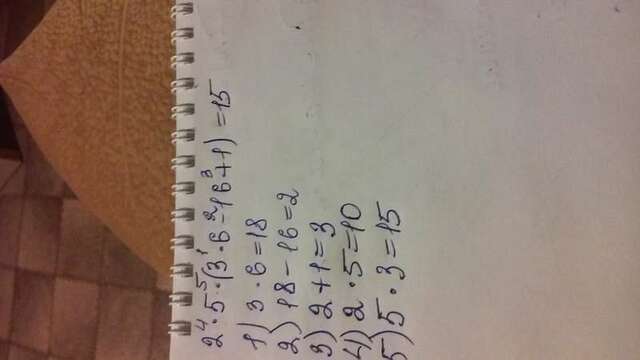 2 ⁴· 5 ⁵· (3 ¹· 6 ²- 16 ³+ 1) = 15
1) 3 · 6 = 18
2) 18 - 16 = 2
3) 2 + 1 = 3
4) 2 · 5 = 10
5) 5 · 3 = 15